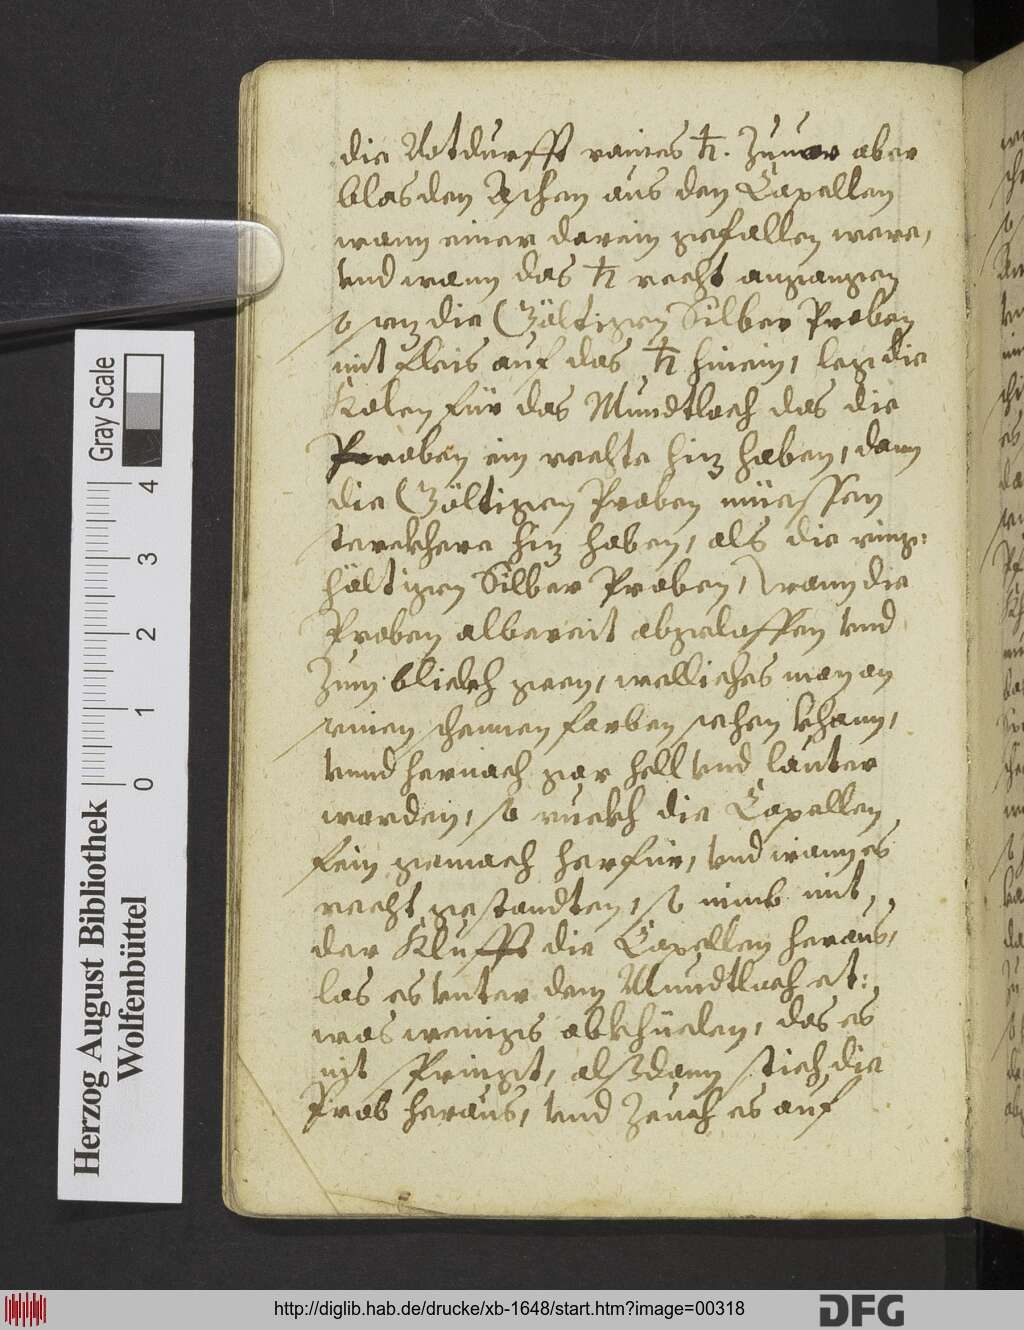 die Notdurfft raines ♄. Zuuor aber
blas den Aschen aus den Capellen
wann einer darein gefallen were,
vnd wann das ♄ recht angangen
so setz die Gültigen Silber Proben
mit fleis auf das ♄ hinein, leg die
Kolen für das Mundtloch das die
Proben ein rechte hitz haben, dann
die Gültigen Proben müessen
sterckhere hitz haben, als die ring:
hältigen Silber Proben, wann die
Proben albereit abgeloffen vnd
Zum blickh geen, welliches man an
seinen schennen farben sehen khann,
vnnd hernach gar hell vnd lauter
worden, so ruckh die Capellen
fein gemach herfür, vnd wann es
recht gestandten, so nimb mit
der Klufft die Capellen heraus,
las es vnter dem Mundtloch et:
was wenigs abkhüelen, das es
nit springt, alßdann stich die
Prob heraus, vnd Zeuch es auf
Herzog August Bibliothek
Wolfenbüttel
Gray Scale
0 1 2 3 4
http://diglib.hab.de/drucke/xb-1648/start.htm?image=00318
DFG